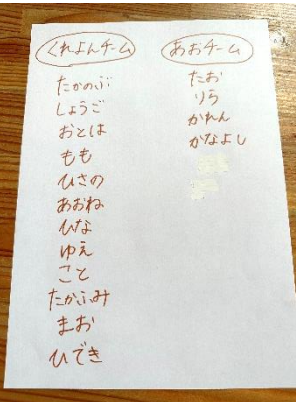 くれよんチーム
たかのぶ
しょうご
おとは
もも
ひさの
あおね
ひな
ゆえ
こと
たかふみ
まお
ひでき
あおチーム
たお
りら
かれん
かなよし